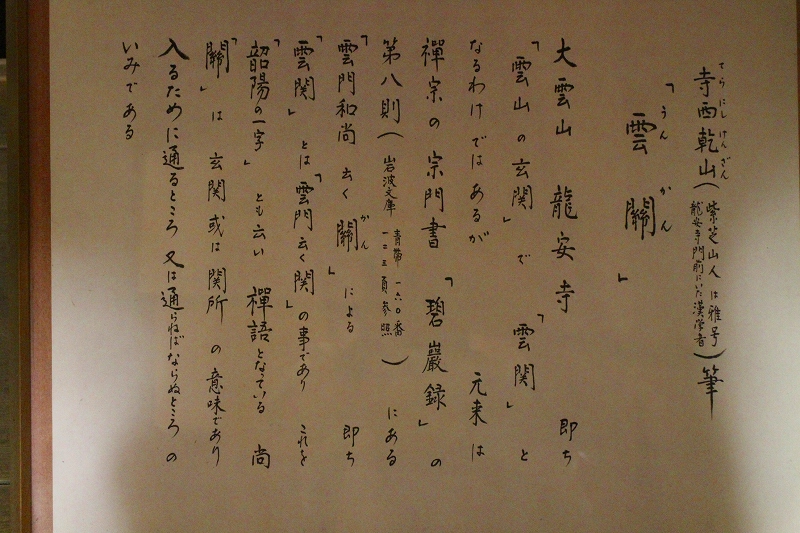 寺西乾山(紫芝山人は雅号 龍安寺門前にいた漢学者)筆
てらにしけんざん
「雲關」
うんかん
大雲山 龍安寺 即ち
「雲山の玄関」で「雲関」と
なるわけではあるが 元来は
禅宗の宗門書「碧巖録」の
第八則(岩波文庫 青帯 一六〇番 一二三頁参照)にある
「雲門和尚云く關」による 即ち
かん
「雲関」とは「雲門云く関」の事であり これを
「韶陽の一字」とも云い 禅語となっている 尚
「關」は玄関或は関所の意味であり
入るために通るところ 又は通らねばならぬところの
いみである